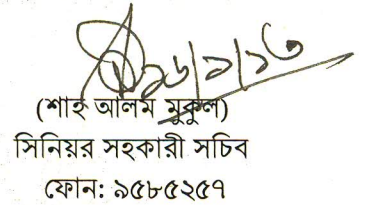 ২৬/২/১৩
(শাহ আলম মুকুল)
সিনিয়র সহকারী সচিব
ফোন: ৯৫৮৫২৫৭